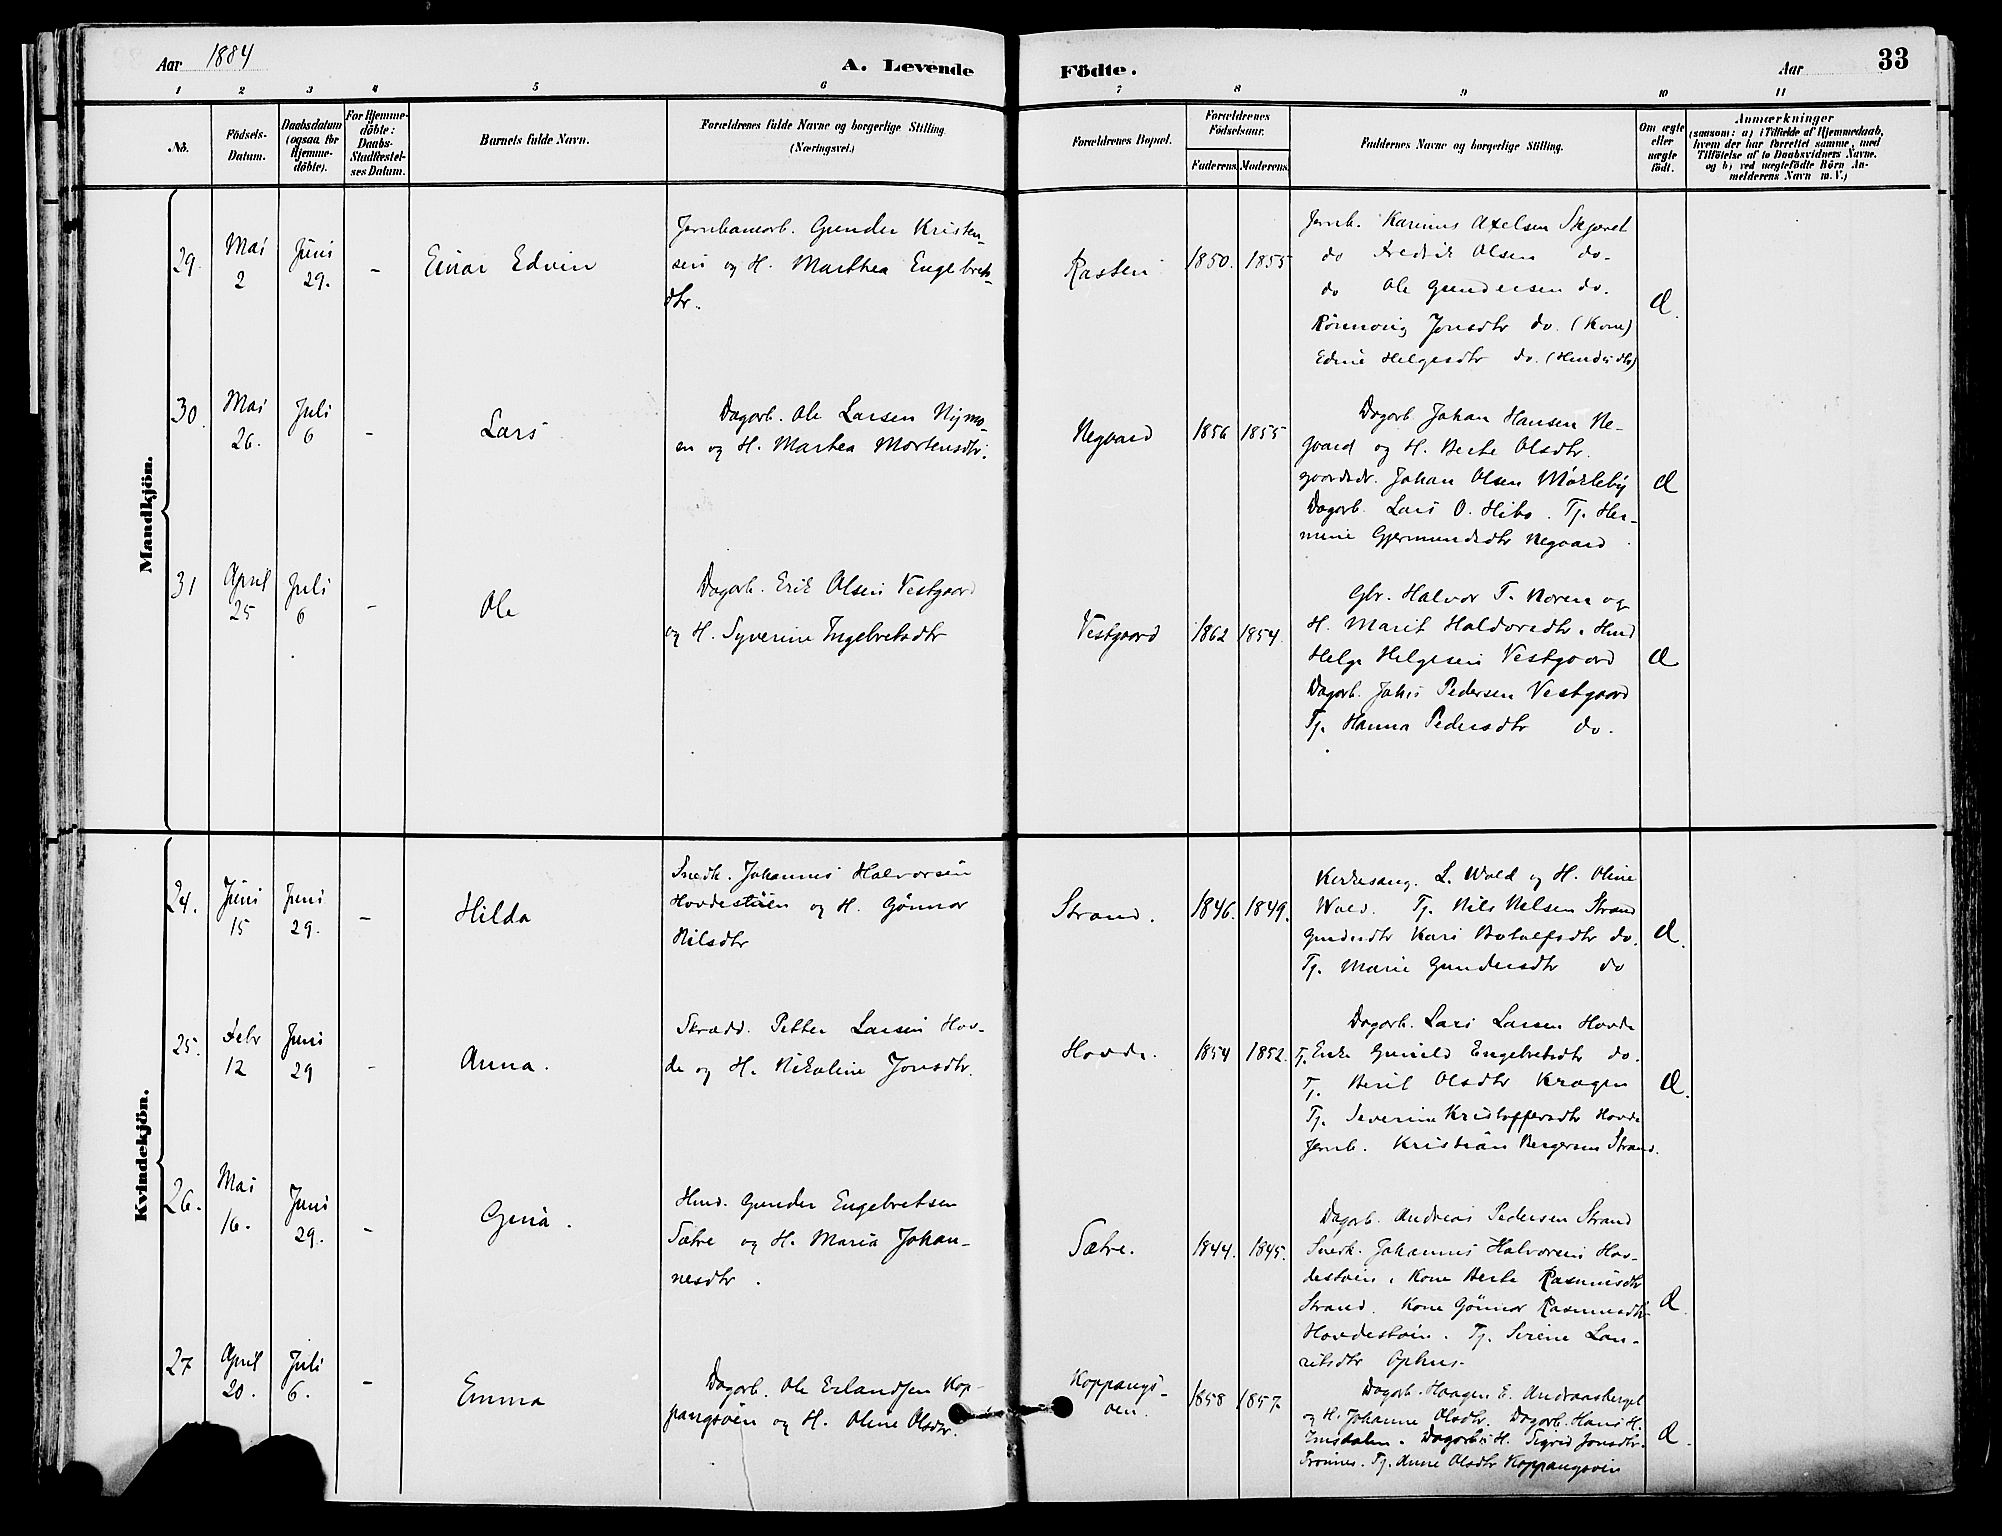 Aar 1884
A. Levende Födte.
Aar
33
1 2 3 4 5 6 7 8 9 10 11
No.
Födsels-Datum.
Daabsdatum (ogsaa for Hjemmedöbte).
For Hjemmedöbte: Daabs-Stadfestelses Datum.
Barnets fulde Navn.
Forældrenes fulde Navne og borgerlige Stilling. (Næringsvei.)
Forældrenes Bopæl.
Forældrenes Födselsaar.
Faderens. Moderens.
Faddernes Navne og borgerlige Stilling.
Om ægte eller uægte födt.
Anmærkninger
(saasom: a) i Tilfælde af Hjemmedaab,
hvem der har forrettet samme, med
Tilföielse af to Daabsvidners Navne.
og b) ved uægtefödte Börn Anmelderens Navn m. V.)
Mandkjön.
29. Mai 2 Juni 29. - Einar Edvin
Jernbanearb. Gunder Kristen-
sen og H. Marthea Engebrets-
dtr.
Rasten 1850. 1855
Jernb. Karinus Axelsen
do Fredrik Olsen do.
do Ole Gundersen do.
Rønnoug Jonsdtr do. (Kone)
Edine Helgesdtr do.
Æ.
30. Mai 26. Juli 6 - Lars
Dagarb. Ole Larsen Nymo-
en og H. Marthea Mortensdtr.
Negaard 1856 1855
Dagarb. Johan Hansen Ne-
gaard og H. Berte Olsdtr.
gaardbr. Johan Olsen Mörkeby
Dagarb. Lars O. Hibo. Tj. Her-
mine Gjermundsdtr Negaard
Æ
31 April 25 Juli 6 - Ole
Dagarb. Erik Olsen Vestgaard
og H. Syverine Ingebretsdtr
Vestgaard 1862 1854.
Gbr. Halvor T. Noren og
H. Marit Haldorsdtr. Hmd
Helge Helgesen Vestgaard
Dagarb. Johs Pedersen Vestgaard
Tj. Hanna Pedersdtr do.
Æ
Kvindekjön.
24. Juni 15 Juni 29. - Hilda
Snedk. Johannes Halvorsen
Hovdestöen og H. Gönnor
Nilsdtr
Strand. 1846. 1849.
Kirkesang. L. Wold og H. Oline
Wold. Tj. Nils Nilsen Strand
Kari Botolfsdtr do.
Tj. Marie Gundersdtr do
Æ.
25. Febr 12 Juni 29 - Anna.
Skrædd. Petter Larsen Hov-
de og H. Nikoline Jonsdtr.
Hovde. 1854 1852.
Dagarb. Lars Larsen Hovde
Enke Gunild Engebretsdtr do.
Tj. Beril Olsdtr Kragen
Tj. Severine Kristoffersdtr Hovde
Jernb. Kristian Bergersen Strand.
Æ.
26. Mai 16. Juni 29. - Gina.
Hmd. Gunder Engebretsen
Sætre og H. Maria Johan-
nesdtr.
Sætre. 1844. 1845.
Dagarb. Andreas Pedersen Strand
Snedk. Johannes Halvorsen Hov-
destöen, Kone Berte Rasmusdtr
Strand. Kone Gönnor Rasmusdtr
Hovdestöen. Tj. Serine Lau-
ritsdtr Ophus.
Æ.
27 April 20. Juli 6. - Emma
Dagarb. Ole Erlandsen Kop-
pangsöen og H. Oline Olsdtr.
Koppangs-
öen. 1858 1857
Dagarb. Haagen E. Andraasberget
og H. Johanne Olsdtr. Dagarb. Hans H.
Imsdalen. Dagarb H. Sigrid Jonsdtr.
Trönnes. Tj. Anne Olsdtr Koppangsöen
Æ.